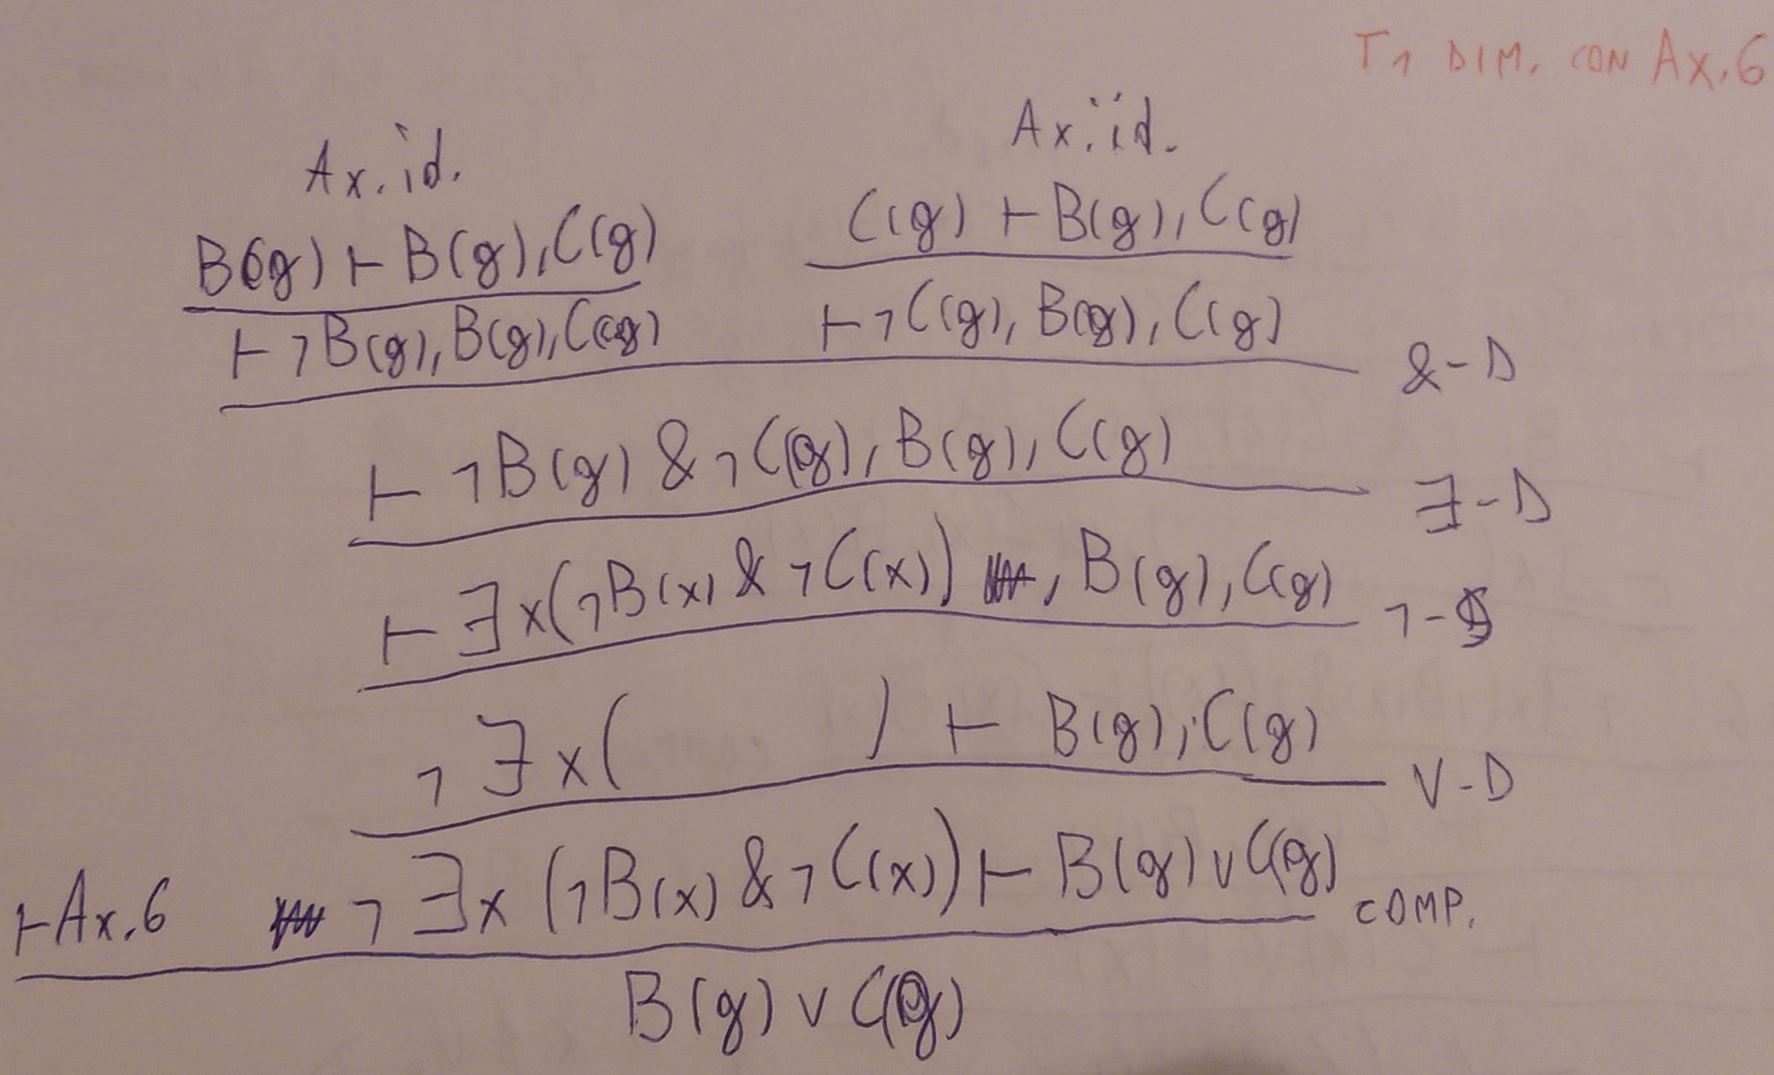 T1 DIM. CON Ax.6
Ax. id.
Ax. id.
B(g) ⊢ B(g), C(g)
C(g) ⊢ B(g), C(g)
⊢ ¬B(g), B(g), C(g)
⊢ ¬C(g), B(g), C(g)
&-D
⊢ ¬B(g) & ¬C(g), B(g), C(g)
∃-D
⊢ ∃x(¬B(x) & ¬C(x)) , B(g), C(g)
¬-S
¬∃x( ) ⊢ B(g), C(g)
∨-D
⊢Ax.6 ¬∃x (¬B(x) & ¬C(x)) ⊢ B(g) ∨ C(g)
COMP.
B(g) ∨ C(g)